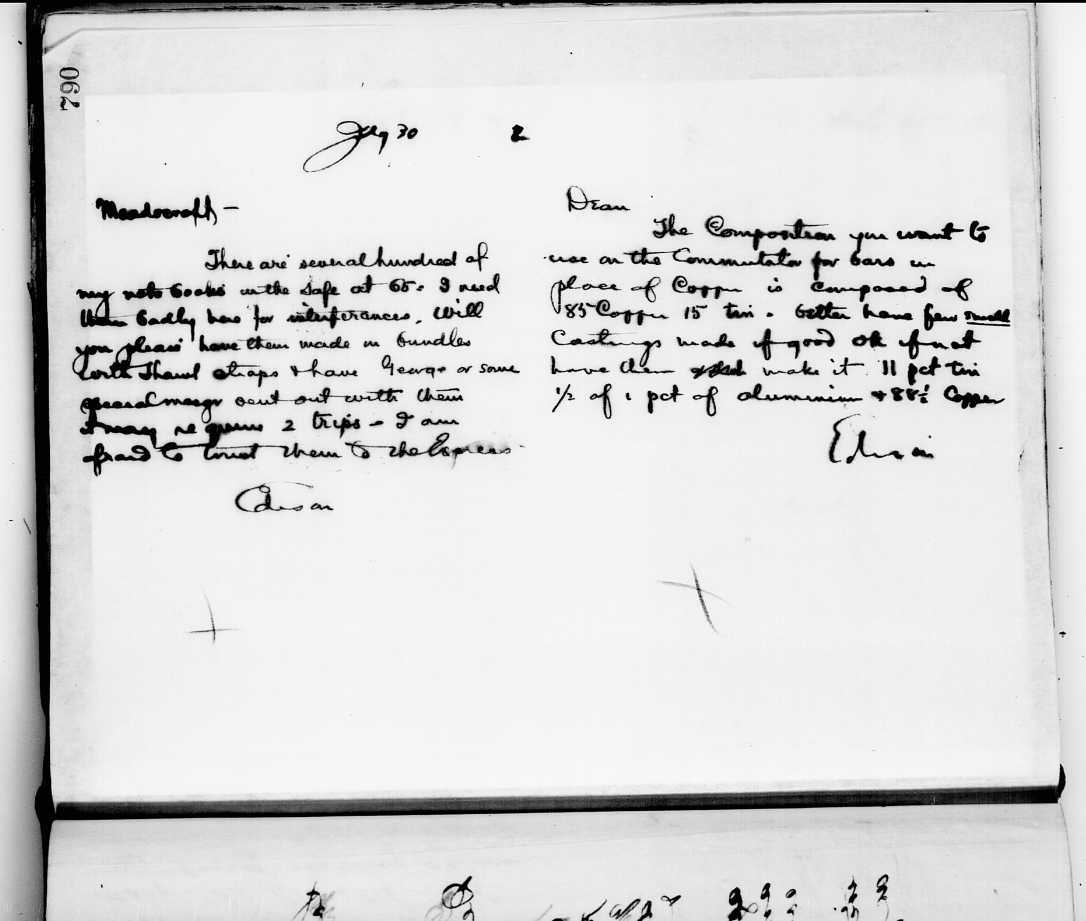 790
July 30 2
Meadowcroft—
There are several hundred of
my note books in the safe at 65. I need
them badly here for interferances. Will
you please have them made in bundles
with Shawl straps & have George or some
special messgr sent out with them
it may require 2 trips — I am
afraid to trust them to the Express
Edison
Dean
The Composition you want to
use on the Commutator for bars in
place of Copper is composed of
85 Copper 15 tin. better have few small
Castings made if good ok if not
have them make it 11 pct tin
1/2 of 1 pct of aluminium & 88½ Copper
Edison